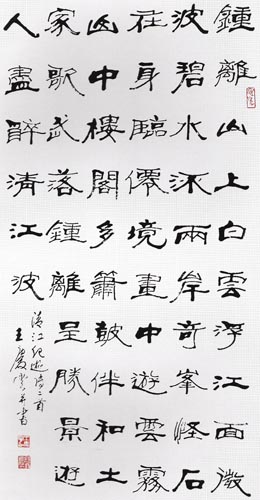 鍾離山上白雲浮江面微
波碧水深兩岸奇峯怪石
在身臨僊境畫中遊雲霧
山中樓閣多簫鼓伴和土
家歌武落鍾離呈勝景遊
人盡醉清江波
清江纪遊诗二首
王慶書